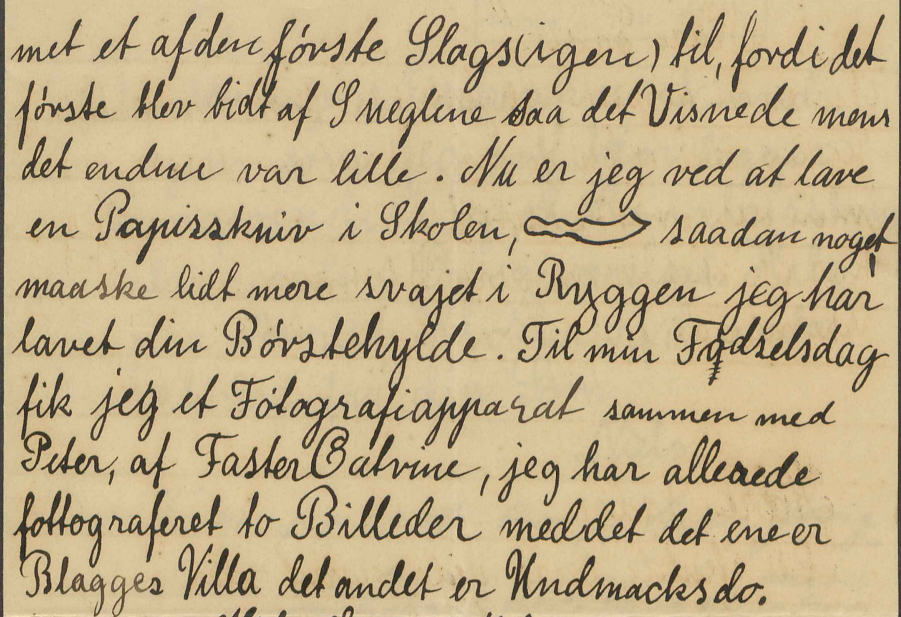 met et af den første Slags (igen) til, fordi det
første blev bidt af Sneglene saa det Visnede mens
det endnu var lille. Nu er jeg ved at lave
en Papirskniv i Skolen, saadan noget
maaske lidt mere svajet i Ryggen jeg har
lavet din Børstehylde. Til min Fødselsdag
fik jeg et Fotografiapparat sammen med
Peter, af Faster Catrine, jeg har allerede
fottograferet to Billeder med det det ene er
Blagges Villa det andet er Undmacks do.